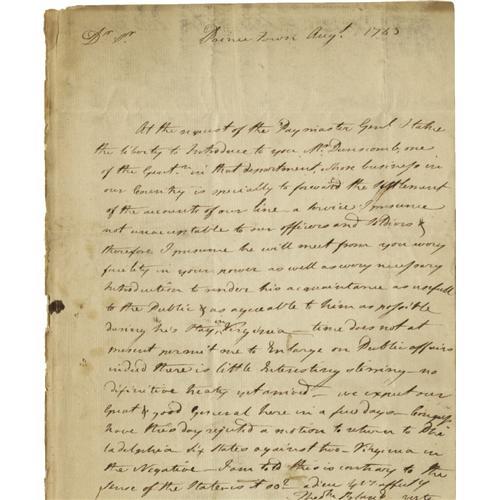 Dr Sr Prince town Augt. 1783
At the request of the Paymaster Genl. I take
the liberty to Introduce to you Mr. Dunscomb, one
of the Gentn. in that department, whose business in
our Country is specially to forward the settlement
of the accounts of our line - a service I presume
not unacceptable to our officers and soldiers &
therefore I presume he will meet from you every
facility in your power as well as every necessary
Introduction to render his acquaintance as usefull
to the Public & as agreeable to him as possible
during his stay in Virginia - time does not at
present permit me to Enlarge on Public affairs
indeed there is little Interesting stirring - no
difinitive treaty yet arrived - we expect our
Great & good General here in a few days - Congress
have this day rejected a motion to return to Phi
ladelphia six states against two - Virginia in
the Negative - I am told this is contrary to the
sense of the State
adieu yrs affectly
Theok. Bland